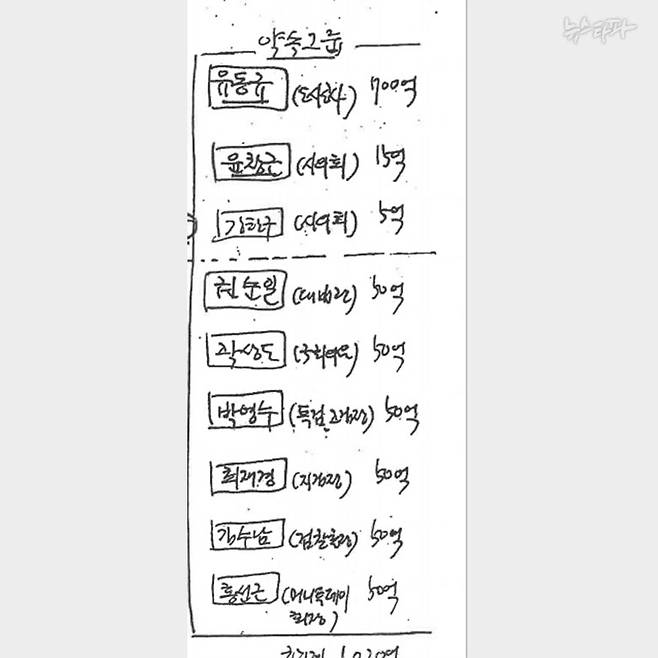 뉴스타파
약속그룹
유동규 (도시공사) 700억
윤창근 (시의회) 15억
강한구 (시의회) 5억
권순일 (대법관) 50억
곽상도 (국회의원) 50억
박영수 (특검, 고검장) 50억
최재경 (지검장) 50억
김수남 (검찰총장) 50억
홍선근 (머니투데이 50억
회장)